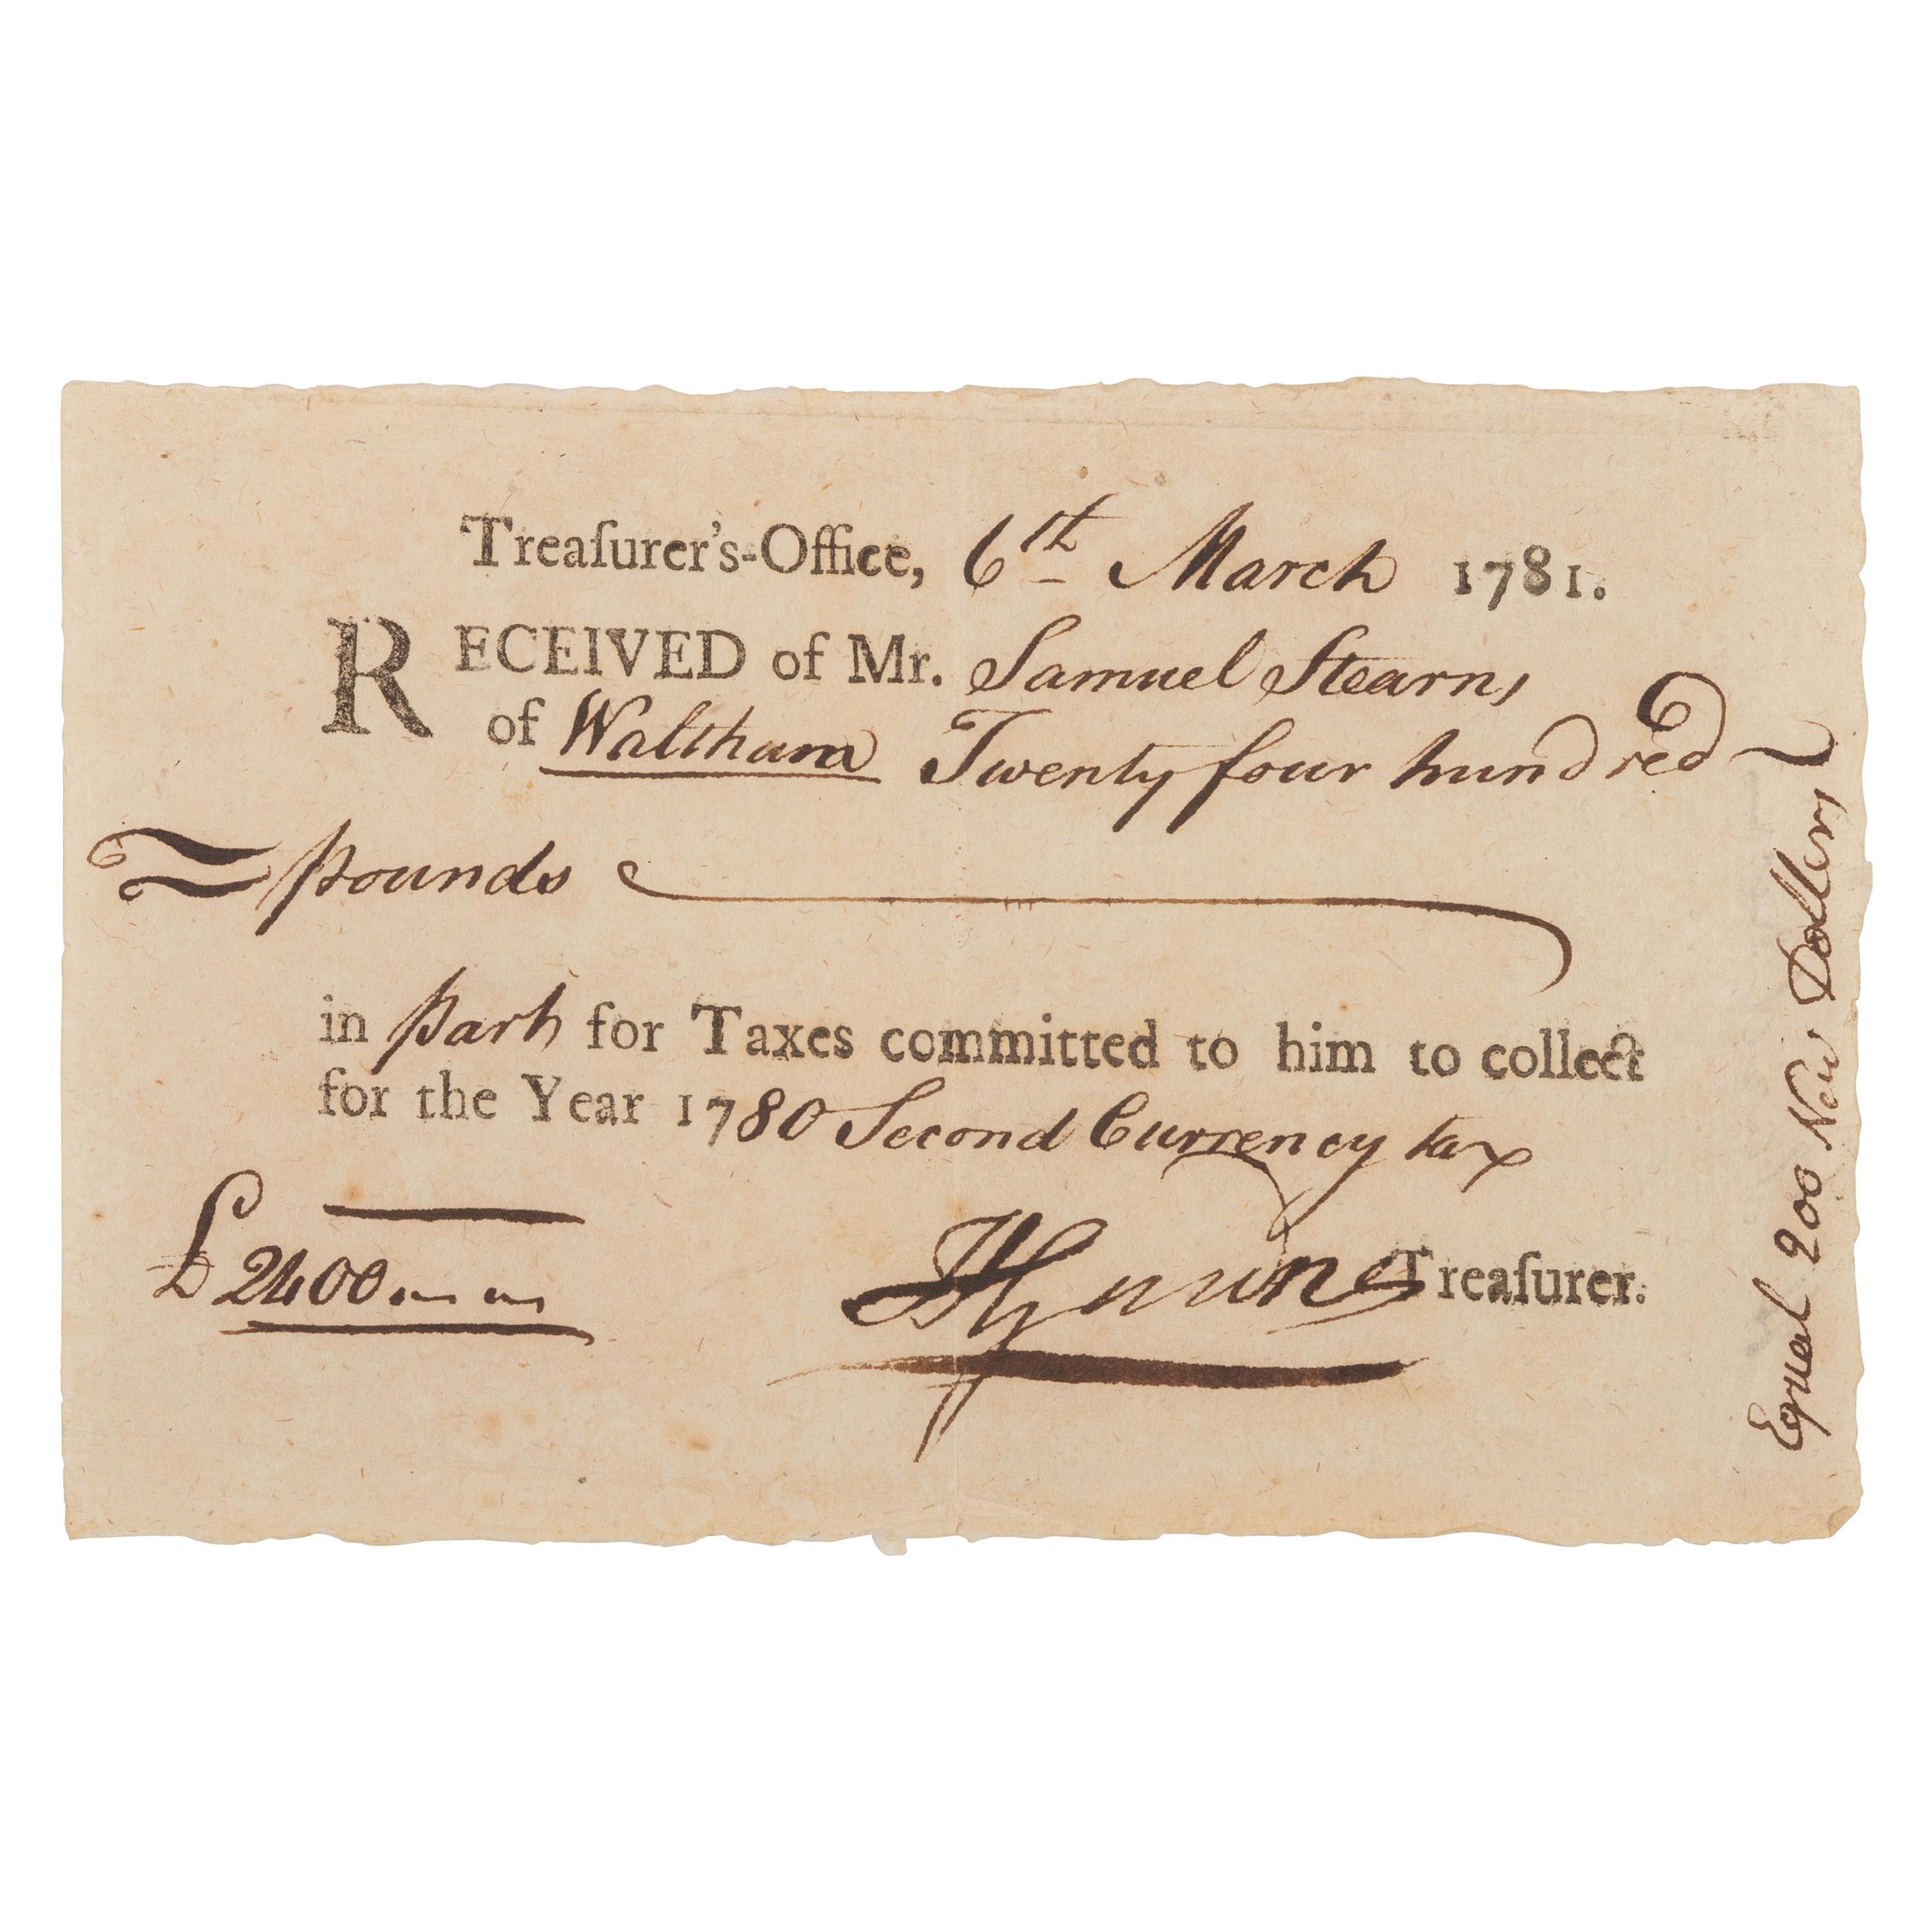 Treaſurer's-Office, 6th March 1781.
RECEIVED of Mr. Samuel Stearns
of Waltham Twenty four hundred
pounds
in part for Taxes committed to him to collect
for the Year 1780 Second Currency tax
£2400.--
HGardner Treaſurer.
Equal 200 New Dollers